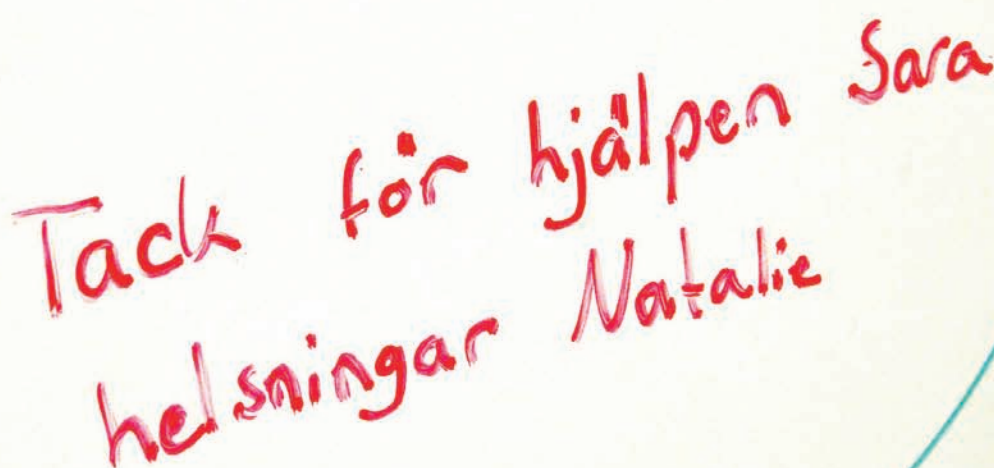 Tack för hjälpen Sara
helsningar Natalie